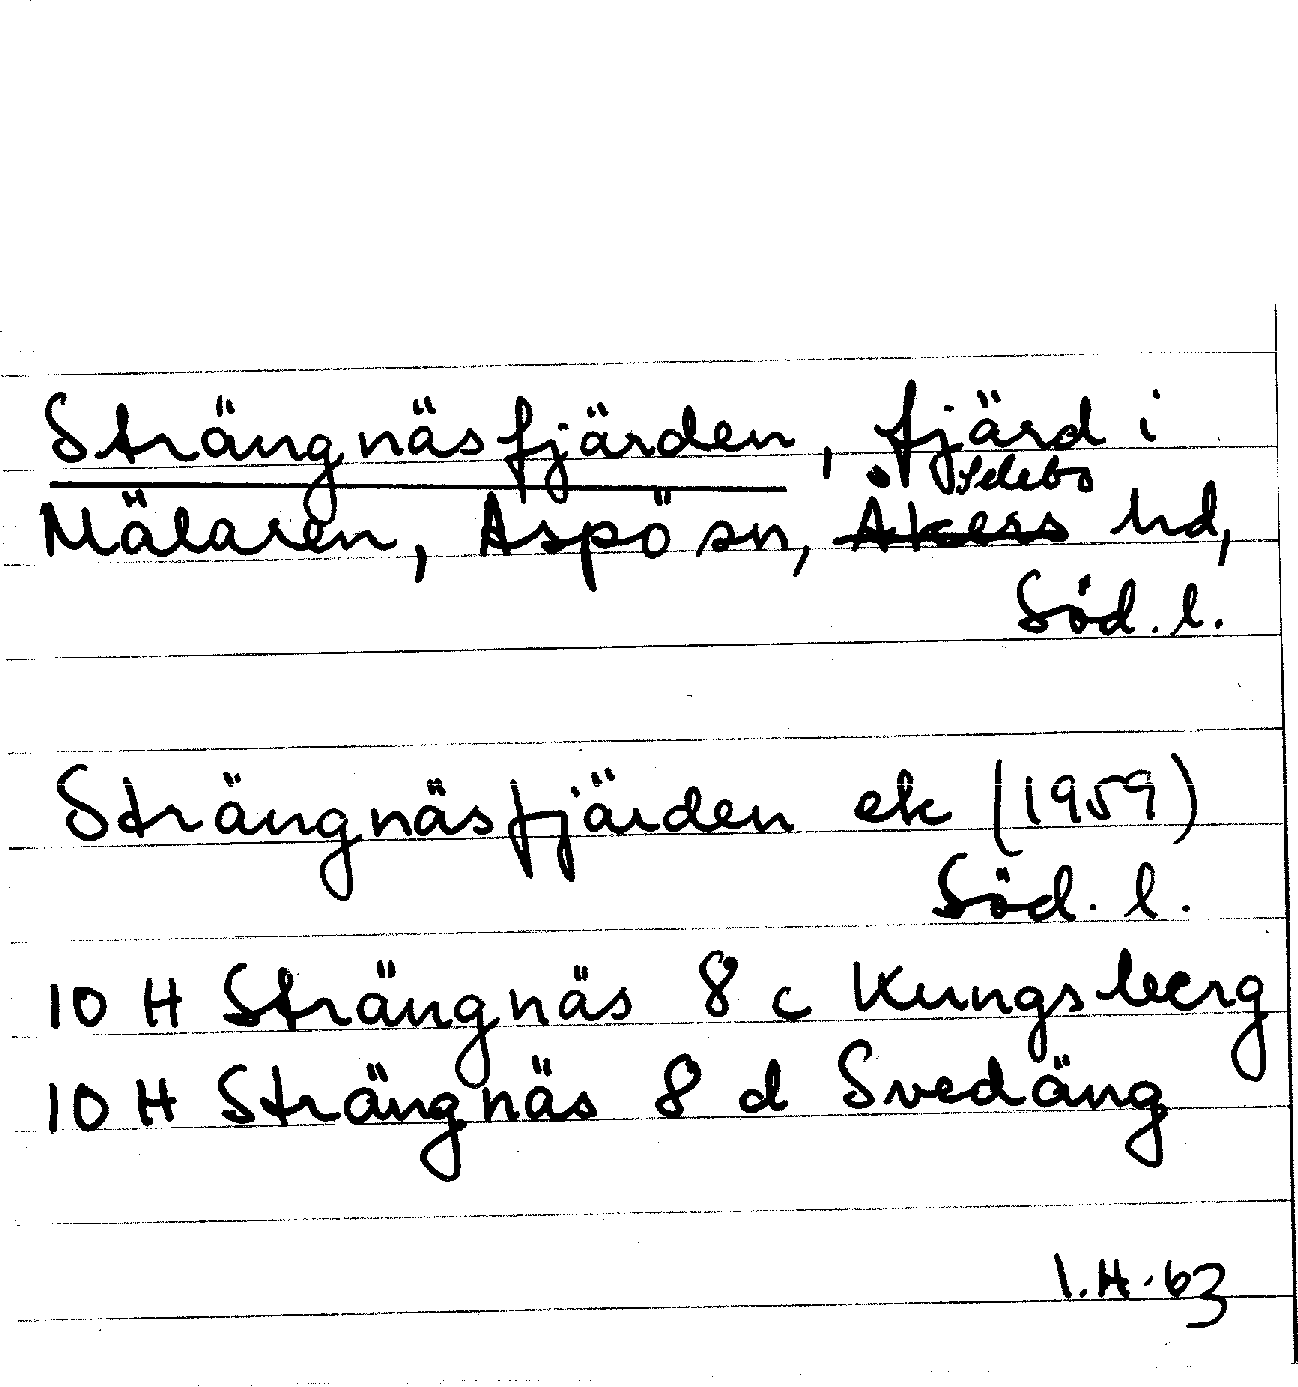 Strängnäsfjärden, fjärd i
Selebo
Mälaren, Aspö sn, Åkers hd,
Söd. l.
Strängnäsfjärden ek (1959)
Söd. l.
10 H Strängnäs 8 c Kungsberg
10 H Strängnäs 8 d Svedäng
I.H. 63